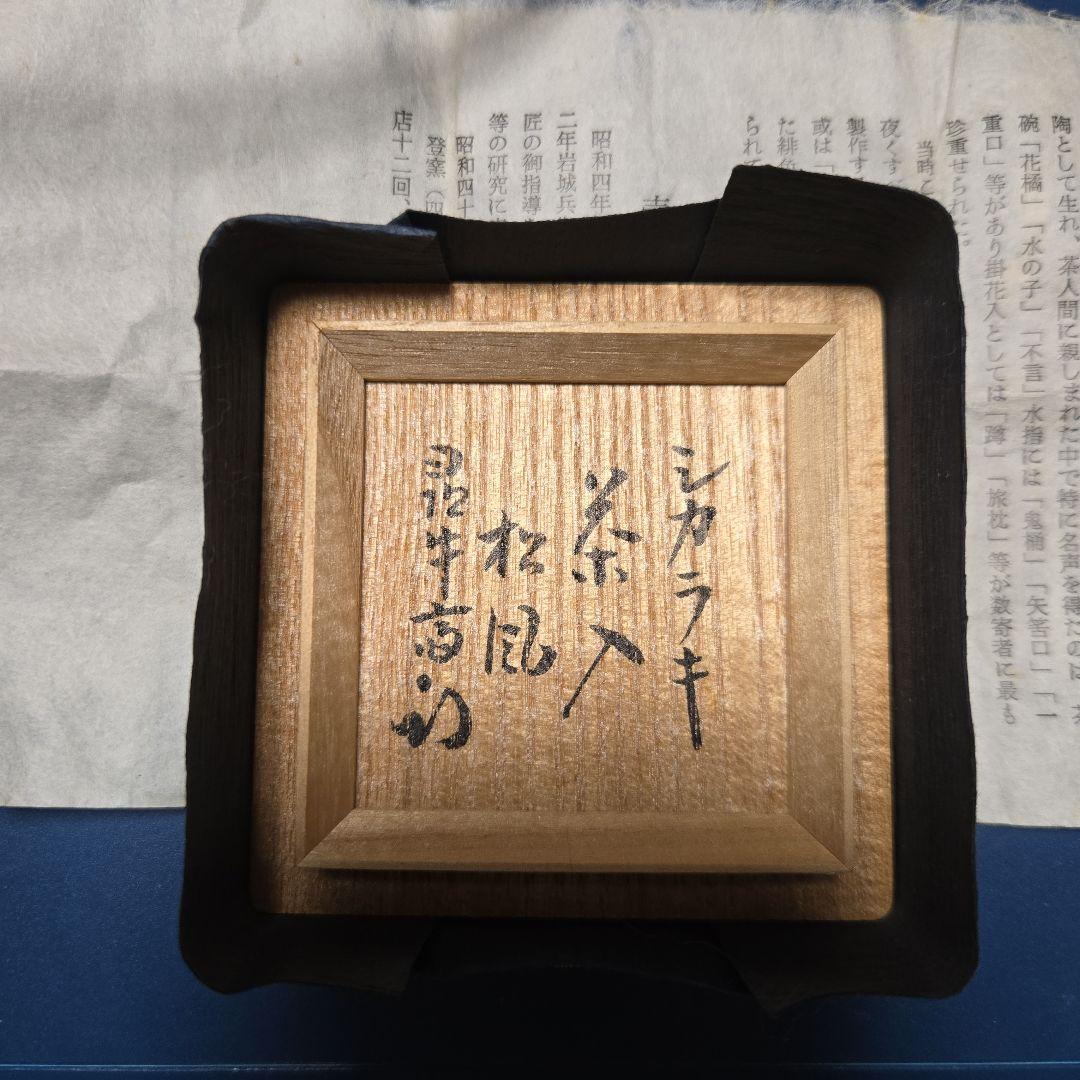 陶として生れ、茶人間に親しまれた中で特に名声を得たのは、茶
碗「花橘」「水の子」「不言」水指には「鬼桶」「矢筈口」「一
重口」等があり掛花入としては「蹲」「旅枕」等が数寄者に最も
珍重せられた。
当時こ
夜くす
製作す
或は「
た緋色
られて
昭和四年
二年岩城兵
匠の御指導
等の研究に
昭和四十
登窯（四
店十二回、
シカラキ
茶入
松風
尋牛斎